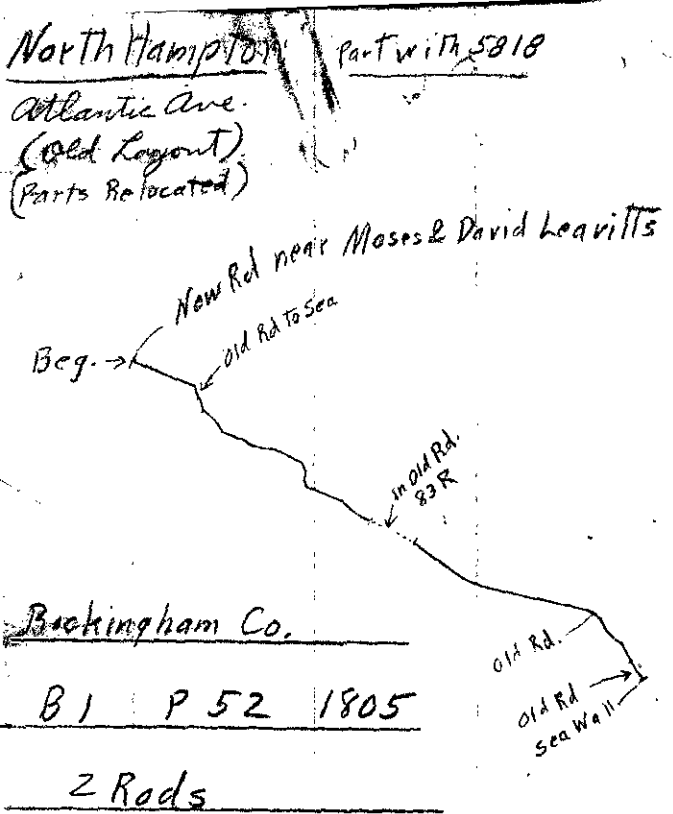 North Hampton Part with 5818
Atlantic Ave.
(Old Layout)
(Parts Relocated)
New Rd near Moses & David Leavitts
Old Rd To Sea
Beg.
in Old Rd.
83 R
Rockingham Co.
Old Rd.
Old Rd
Sea Wall
B 1 P 52 1805
2 Rods